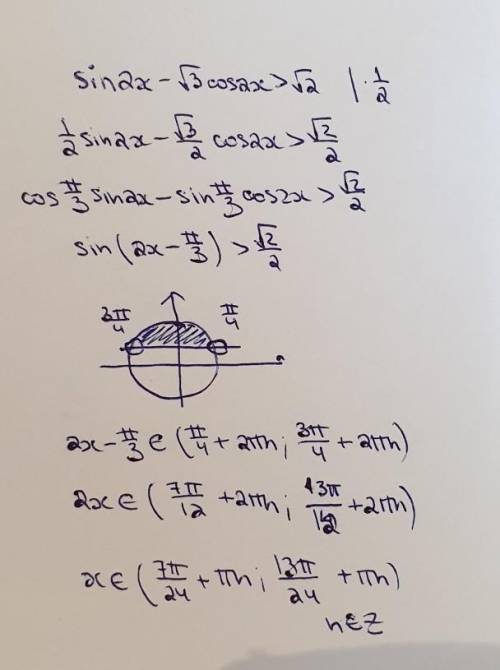 sin2x - √3cos2x > √2 | · 1/2
1/2 sin2x - √3/2 cos2x > √2/2
cos π/3 sin2x - sin π/3 cos2x > √2/2
sin(2x - π/3) > √2/2
3π/4 π/4
2x - π/3 ∈ (π/4 + 2πn; 3π/4 + 2πn)
2x ∈ (7π/12 + 2πn; 13π/12 + 2πn)
x ∈ (7π/24 + πn; 13π/24 + πn)
n∈Z